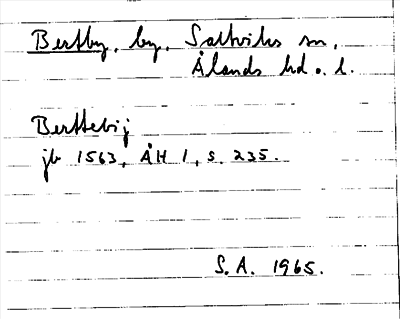 Bertby, by, Saltviks sn,
Ålands hd o. l.
Berttebij
jb 1563, ÅH 1, s. 235.
S.A. 1965.